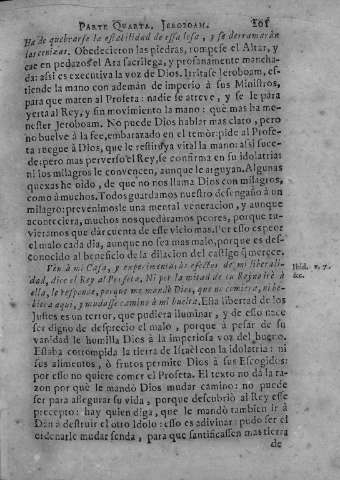 PARTE QUARTA, JEROBOAM. 101
Ha de quebrarse la estabilidad de essa losa, y se derramaràn
las cenizas. Obedecieron las piedras, rompese el Altar, y
cae en pedazos el Ara sacrilega, y profanamente mancha-
da: assi es executiva la voz de Dios. Irritase Jeroboam, es-
tiende la mano con ademàn de imperio à sus Ministros,
para que maten al Profeta: nadie se atreve, y se le para
yerta al Rey, y sin movimiento la mano: que mas ha me-
nester Jeroboam. No puede Dios hablar mas claro, pero
no buelve à la fee, embarazado en el temor: pide al Profe-
ta ruegue à Dios, que le restituya vital la mano: assi suce-
de: pero mas perverso el Rey, se confirma en su idolatria:
ni los milagros le convencen, aunque le arguyan. Algunas
quexas he oido, de que no nos llama Dios con milagros,
como à muchos. Todos guardamos nuestro desengaño à un
milagro: prevenimosle una mental veneracion, y aunque
aconteciera, muchos nos quedaramos peores, porque tu-
vieramos que dàr cuenta de esse vicio mas. Por esso es peor
el malo cada dia, aunque no sea mas malo, porque es des-
conocido al beneficio de la dilacion del castigo q̃ merece.
Ven à mi Casa, y experimentaràs efectos de mi liberali-
dad, dice el Rey al Profeta. Ni por la mitad de tu Reyno irè à
ella, le responde, porque me mandò Dios, que no comiera, ni be-
biera aqui, y mudasse camino à mi buelta. Essa libertad de los
Justos es un terror, que pudiera iluminar, y de esso nace
ser digno de desprecio el malo, porque à pesar de su
vanidad le humilla Dios à la imperiosa voz del bueno.
Estaba corrompida la tierra de Israël con la idolatria: ni
sus alimentos, ò frutos permite Dios à sus Escogidos:
por esso no quiere comer el Profeta. El texto no dà la ra-
zon por què le mandò Dios mudar camino: no puede
ser para assegurar su vida, porque descubriò al Rey esse
precepto: hay quien diga, que le mandò tambien ir à
Dan à destruir el otro Idolo: esso es adivinar: pudo ser el
ordenarle mudar senda, para que santificassen mas tierra
de
Ibid. v. 7.
&c.